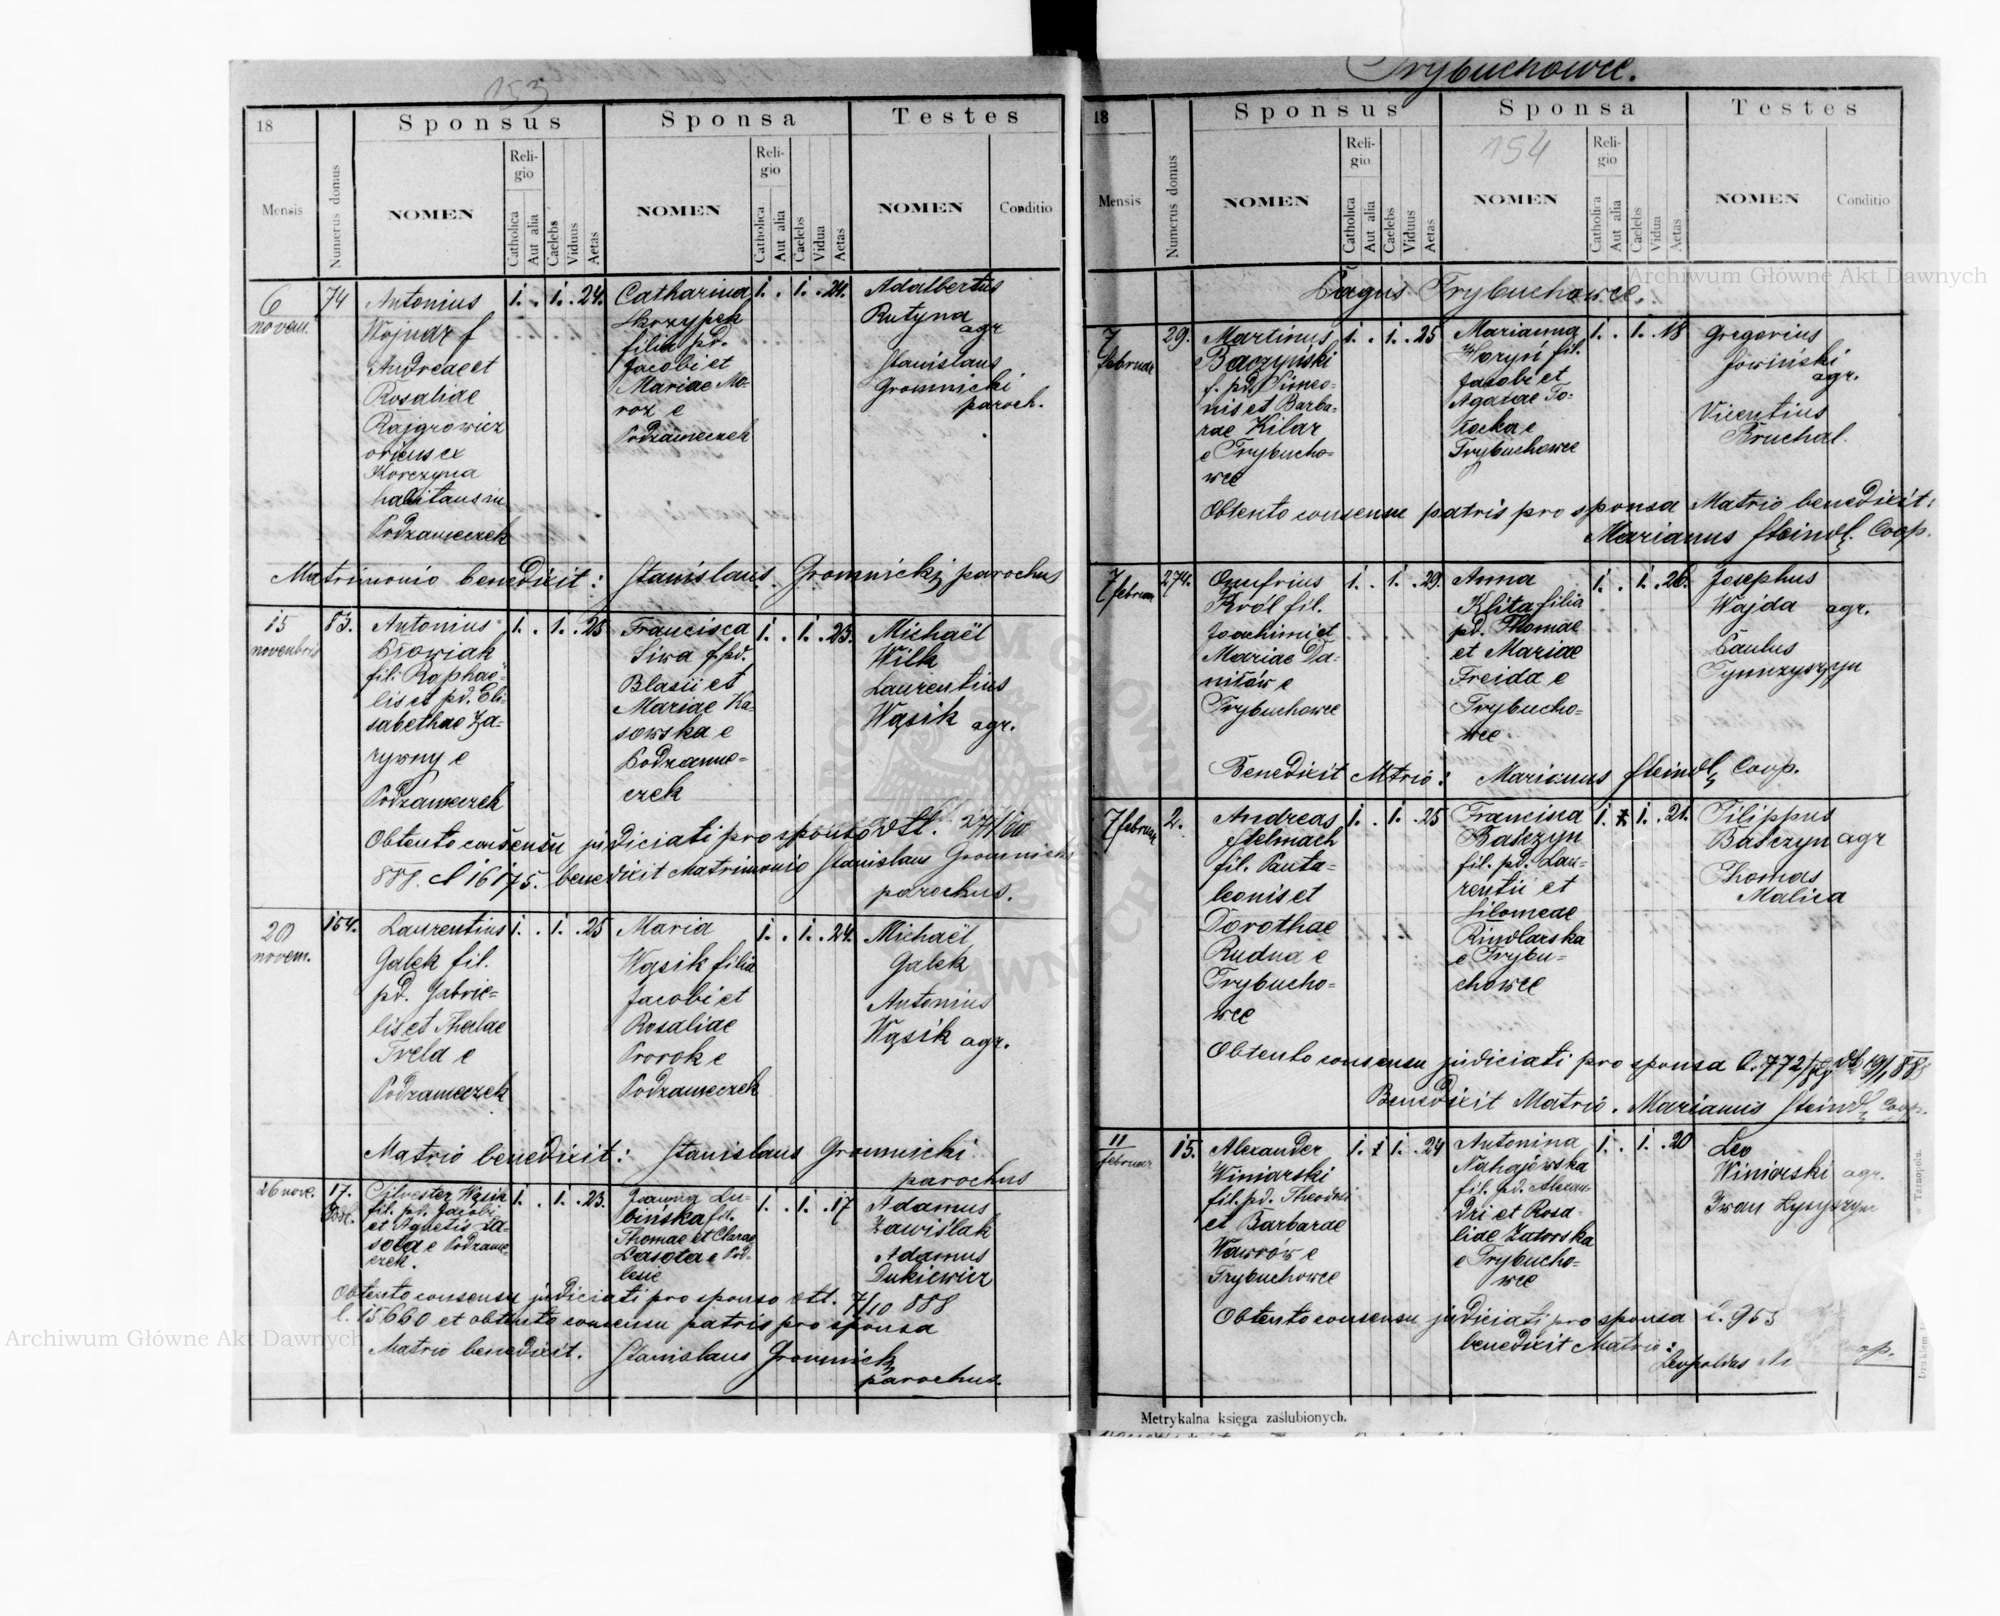 153
18
Sponsus
Sponsa
Testes
Mensis
Numerus domus
NOMEN
Religio
Catholica
Aut alia
Caelebs
Viduus
Aetas
NOMEN
Religio
Catholica
Aut alia
Caelebs
Vidua
Aetas
NOMEN
Conditio
6
novem.
74
Antonius
Wojnar f
Andreae et
Rosaliae
Rajgrowicz
oriens ex
Korczyna
habitans in
Podzameczek
1. . 1. . 24.
Catharina
Skrzypek
filia pd.
Jacobi et
Mariae Mo-
roz e
Podzameczek
1. . 1. . 24.
Adalbertus
Rutyna
agr
Stanislaus
Gromnicki
paroch.
Matrimonio benedixit: Stanislaus Gromnicki parochus
15
novembris
83.
Antonius
Biowiak
fil: Raphaë-
lis et pd. Eli-
sabethae Za-
rywny e
Podzameczek
1. . 1. . 25
Francisca
Siwa f. pd.
Blasii et
Mariae Ka-
sowska e
Podzame-
czek
1. . 1. . 23.
Michaël
Wilk
Laurentius
Wąsik agr.
Obtento consensu judiciati pro sponso dtt. 27/10
888. l 16175. benedixit Matrimonio Stanislaus Gromnicki
parochus.
20
novem.
154.
Laurentius
Galek fil.
pd. Gabrie-
lis et Theclae
Freld e
Podzameczek
1. . 1. . 25
Maria
Wąsik filia
Jacobi et
Rosaliae
Prorok e
Podzameczek
1. . 1. . 24.
Michaël
Galek
Antonius
Wąsik agr.
Matrio benedixit: Stanislaus Gromnicki
parochus
26 nove.
17.
Silvester Wąsik
fil. pd. Jacobi
et Agnetis La-
sota e Podzame
czek.
1. . 1. . 23.
Lu-
bińska fil.
Thomae et Clarae
Lasota e Pod-
lesie
1. . 1. . 17
Adamus
Zawiślak
Adamus
Dukiewicz
Obtento consensu judiciati pro sponso dtt. 7/10 888
l. 15660 et obtento consensu patris pro sponsa
Matrio benedixit. Stanislaus Gromnicki
parochus.
Trybuchowce.
18
Sponsus
Sponsa
Testes
154
Mensis
Numerus domus
NOMEN
Religio
Catholica
Aut alia
Caelebs
Viduus
Aetas
NOMEN
Religio
Catholica
Aut alia
Caelebs
Vidua
Aetas
NOMEN
Conditio
Pagus Trybuchowce.
7
februar
29.
Martinus
Baczyński
f. pd. Simeo-
nis et Barba-
rae Kilar
e Trybucho-
wce
1. . 1. . 25
Marianna
Horyń fil.
Jacobi et
Agatae To-
tocka e
Trybuchowce
1. . 1. . 18
Gregorius
Jowiński
agr.
Vicentius
Bruchal.
Obtento consensu patris pro sponsa Matrio benedixit:
Marianus Steindl. Coop.
7 februar
274.
Onufrius
Król fil.
Joachimi et
Mariae Da-
niłów e
Trybuchowce
1. . 1. . 29.
Anna
Klita filia
pd. Thomae
et Mariae
Freida e
Trybucho-
wce
1. . 1. . 26.
Josephus
Wajda agr.
Paulus
Tymczyszyn
Benedixit Mtrio: Marianus Steindl, Coop.
7 februar
2.
Andreas
Stelmach
fil. Panta-
leonis et
Dorothae
Rudna e
Trybucho-
wce
1. . 1. . 25
Francisca
Bałczyn
fil. pd. Lau-
rentii et
Filomeae
Rindlarska
e Trybu-
chowce
1. 1. . 21.
Filippus
Bałczyn agr
Thomas
Malica
Obtento consensu judiciati pro sponsa l. 772/
Benedixit Matrio. Marianus Steindl, Coop.
11
februar
15.
Alexander
Winiarski
fil. pd. Theodori
et Barbarae
Wawrów e
Trybuchowce
1. 1. . 24
Antonina
Nahajówska
fil. pd. Alexan-
dri et Rosa-
liae Zatorska
e Trybucho-
wce
1. . 1. . 20
Leo
Winiarski agr.
Iwan Łysyszyn
Obtento consensu judiciati pro sponsa l. 953
benedixit Matrio:
Leopoldus
Metrykalna księga zaślubionych.
w Tarnopolu.
Archiwum Główne Akt Dawnych
Archiwum Główne Akt Dawnych